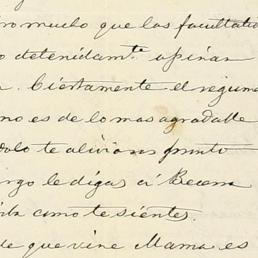 ro mucho que los facultati
o detenidamte. opinar
n. Ciertamente el regimen
no es de lo mas agradable
dolo te alivias pronto
rgo le digas á Becerra
riba como te sientes.
de que vine Mama es